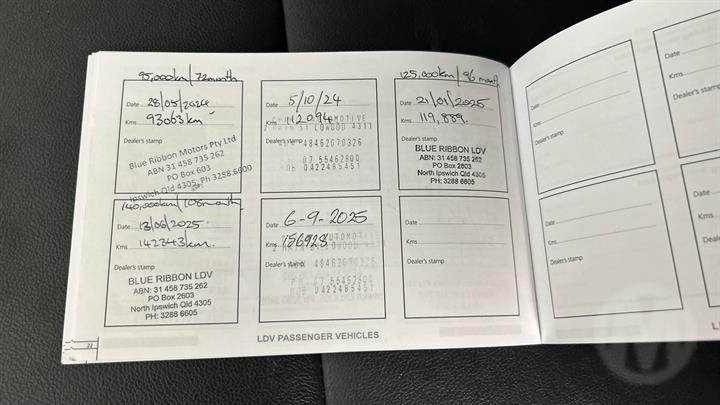 95,000km / 72month
Date 28/05/2024
Kms 93063km
Dealer's stamp
Blue Ribbon Motors Pty Ltd
ABN 31 458 735 262
PO Box 603
Ipswich Qld 4305 Ph 3288 6600
Date 5/10/24
Kms 112094
Dealer's stamp
2 LOWOOD 4311
48462070326
07 55462800
0422485451
125,000km / 96 month
Date 21/01/2025
Kms 119,889
Dealer's stamp
BLUE RIBBON LDV
ABN: 31 458 735 262
PO Box 2603
North Ipswich Qld 4305
PH: 3288 6605
140,000km / 108month
Date 13/06/2025
Kms 142343km
Dealer's stamp
BLUE RIBBON LDV
ABN: 31 458 735 262
PO Box 2603
North Ipswich Qld 4305
PH: 3288 6605
Date 6-9-2025
Kms 156928
Dealer's stamp
LOWOOD 4311
48462070326
07 55462800
0422485451
Date
Kms
Dealer's stamp
22
LDV PASSENGER VEHICLES
Date
Kms
Dealer's stamp
Date
Kms
Dealer's stamp
Date
Kms
Dealer's stamp
Date
Kms
Dealer's stamp